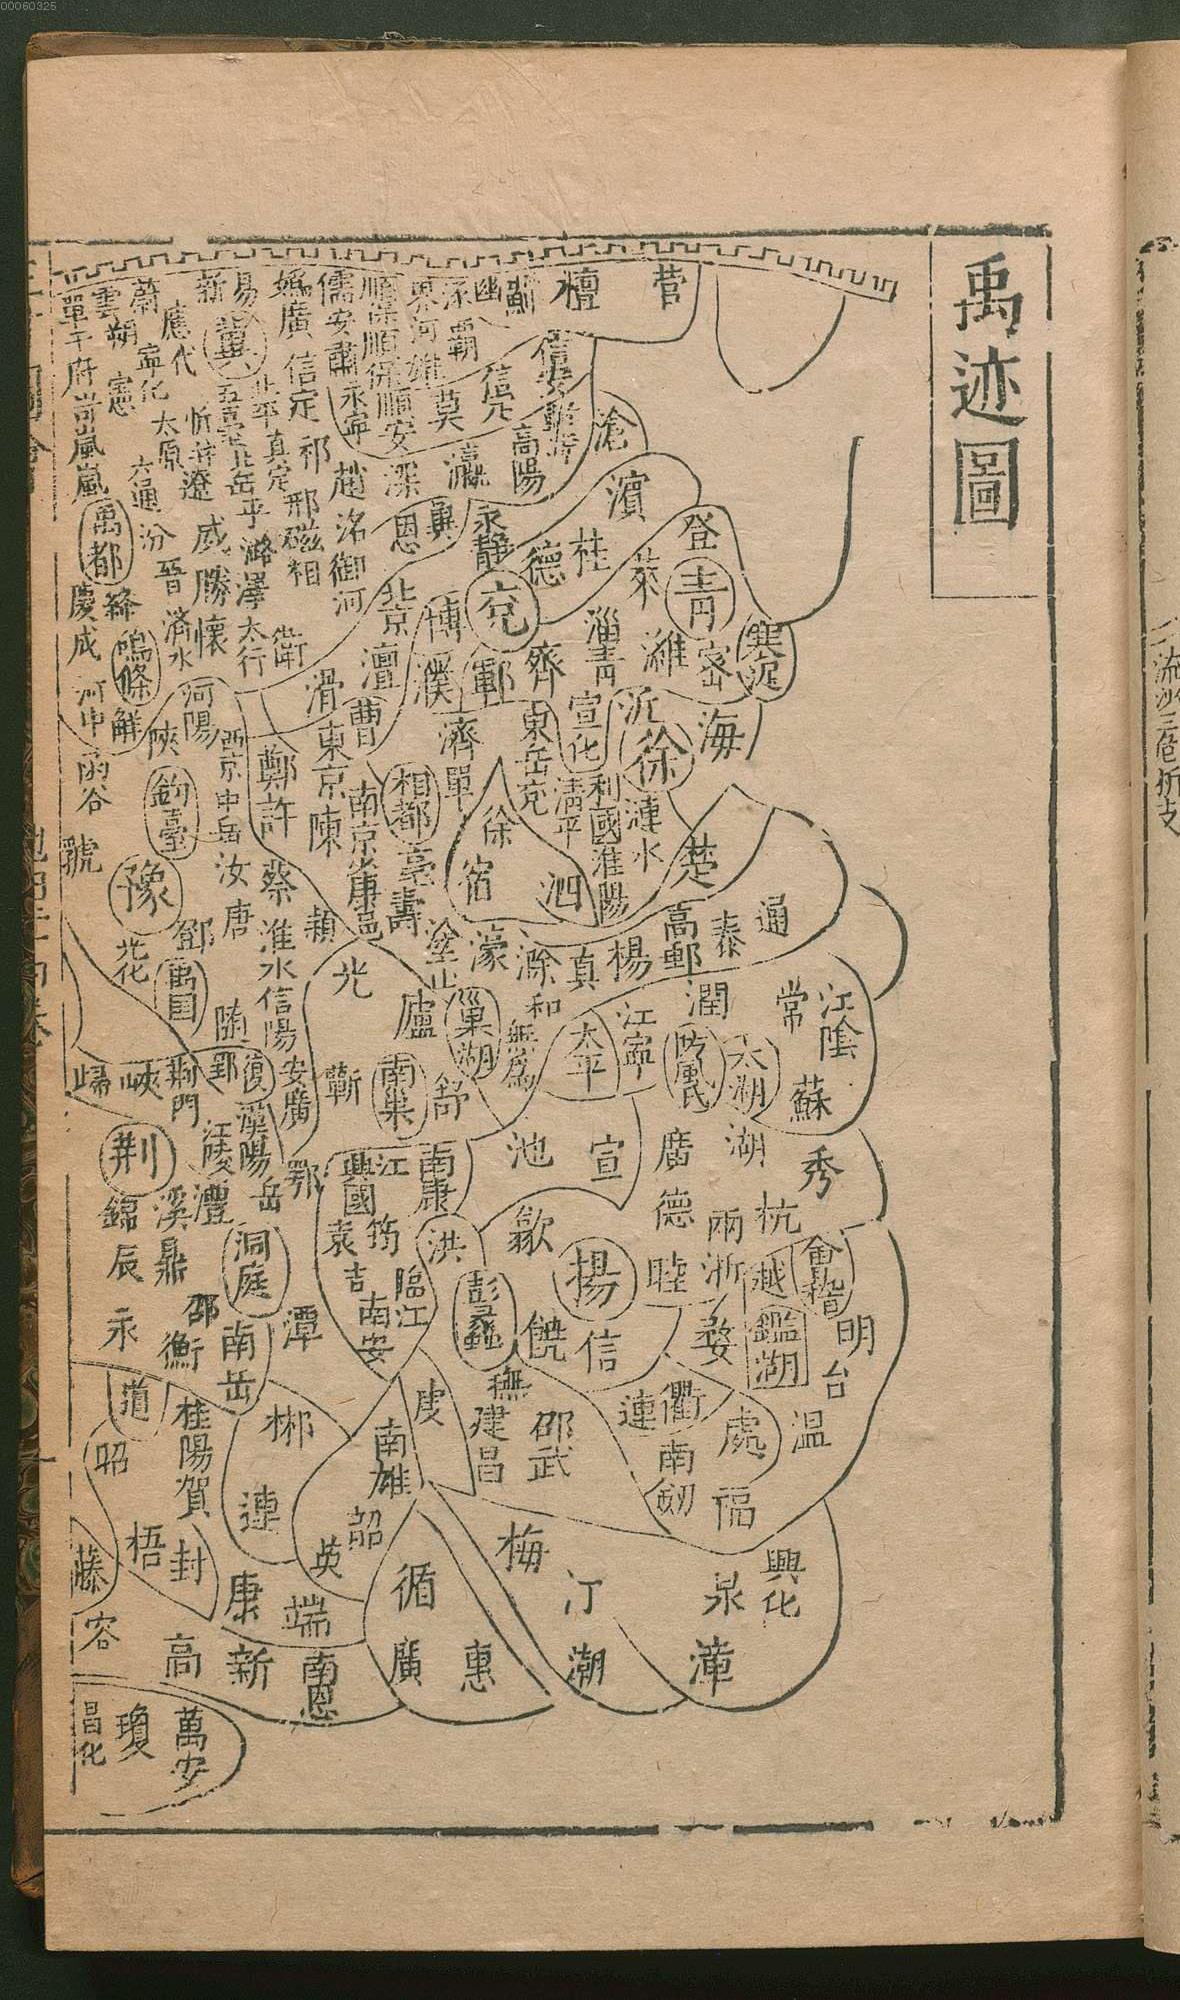 00060325
禹迹圖
營
檀
薊
幽
涿
霸
東
河
雄
順
保
順
安
儒
安
肅
永寧
媯
廣
信
定
易
新
冀
應
代
蔚
寧化
雲
朔
憲
單于府
嵐
信安
莫
高陽
滄
濱
瀛
深
趙
祁
真定
北岳
太原
汾
遼
平
潞
澤
威勝
懷
太行
邢
磁
相
洺
御河
恩
冀
永靜
德
登
萊
青
濰
密
寒浞
淄
青
齊
兗
博
北京
澶
濮
鄆
滑
衛
晉
濟水
禹都
絳
慶成
鳴條
解
河中
函谷
陝
河陽
西京
中岳
鈞臺
虢
豫
鄭
許
東京
陳
曹
南京
相都
亳
壽
濟
單
東岳
兗
宣化
清平
沂
徐
海
利國
淮陽
漣水
徐
宿
泗
楚
高郵
泰
通
楊
真
滁
和
濠
無為
汝
唐
蔡
淮水
信陽
安
廣
潁
光
鄧
禹国
隨
郢
復
廬
巢湖
南巢
舒
蘄
太平
江寧
潤
防風氏
太湖
常
江陰
蘇
秀
湖
廣德
宣
池
歸
峽
荆門
荆
江陵
漢陽
岳
鄂
澧
錦
溪
辰
鼎
洞庭
潭
邵
衡
南岳
永
興國
江
南康
洪
袁
筠
吉
臨江
南安
歙
揚
彭蠡
饒
信
睦
兩浙
杭
越
會稽
鑑湖
明
台
婺
衢
處
溫
連
南劒
福
撫
建昌
邵武
道
桂陽
賀
昭
郴
連
南雄
韶
英
藤
梧
封
康
端
容
高
新
南恩
循
廣
惠
梅
汀
潮
泉
漳
興化
昌化
瓊
萬安
流沙三危析支